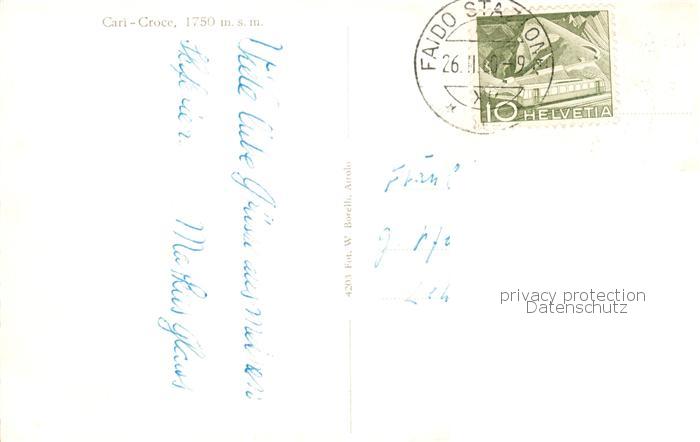 Cari - Croce, 1750 m. s. m.
Viele liebe Grüsse aus meinen
Skiferien.
Markus Glaus
4203 Fot. W. Borelli, Airolo
FAIDO STAZIONE
26. II. 60-9
10 HELVETIA
Fräul
privacy protection
Datenschutz